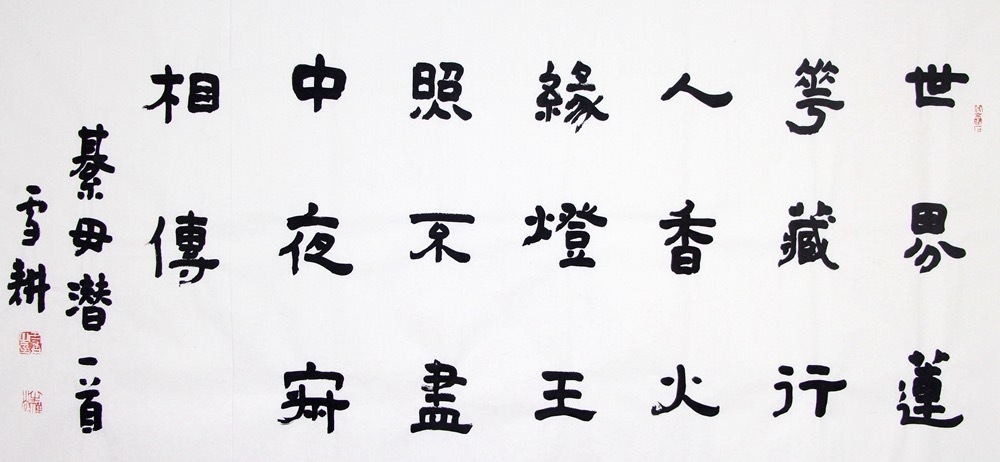 世界蓮
華藏行
人香火
緣燈王
照不盡
中夜寂
相傳
綦毋潜一首
雪耕